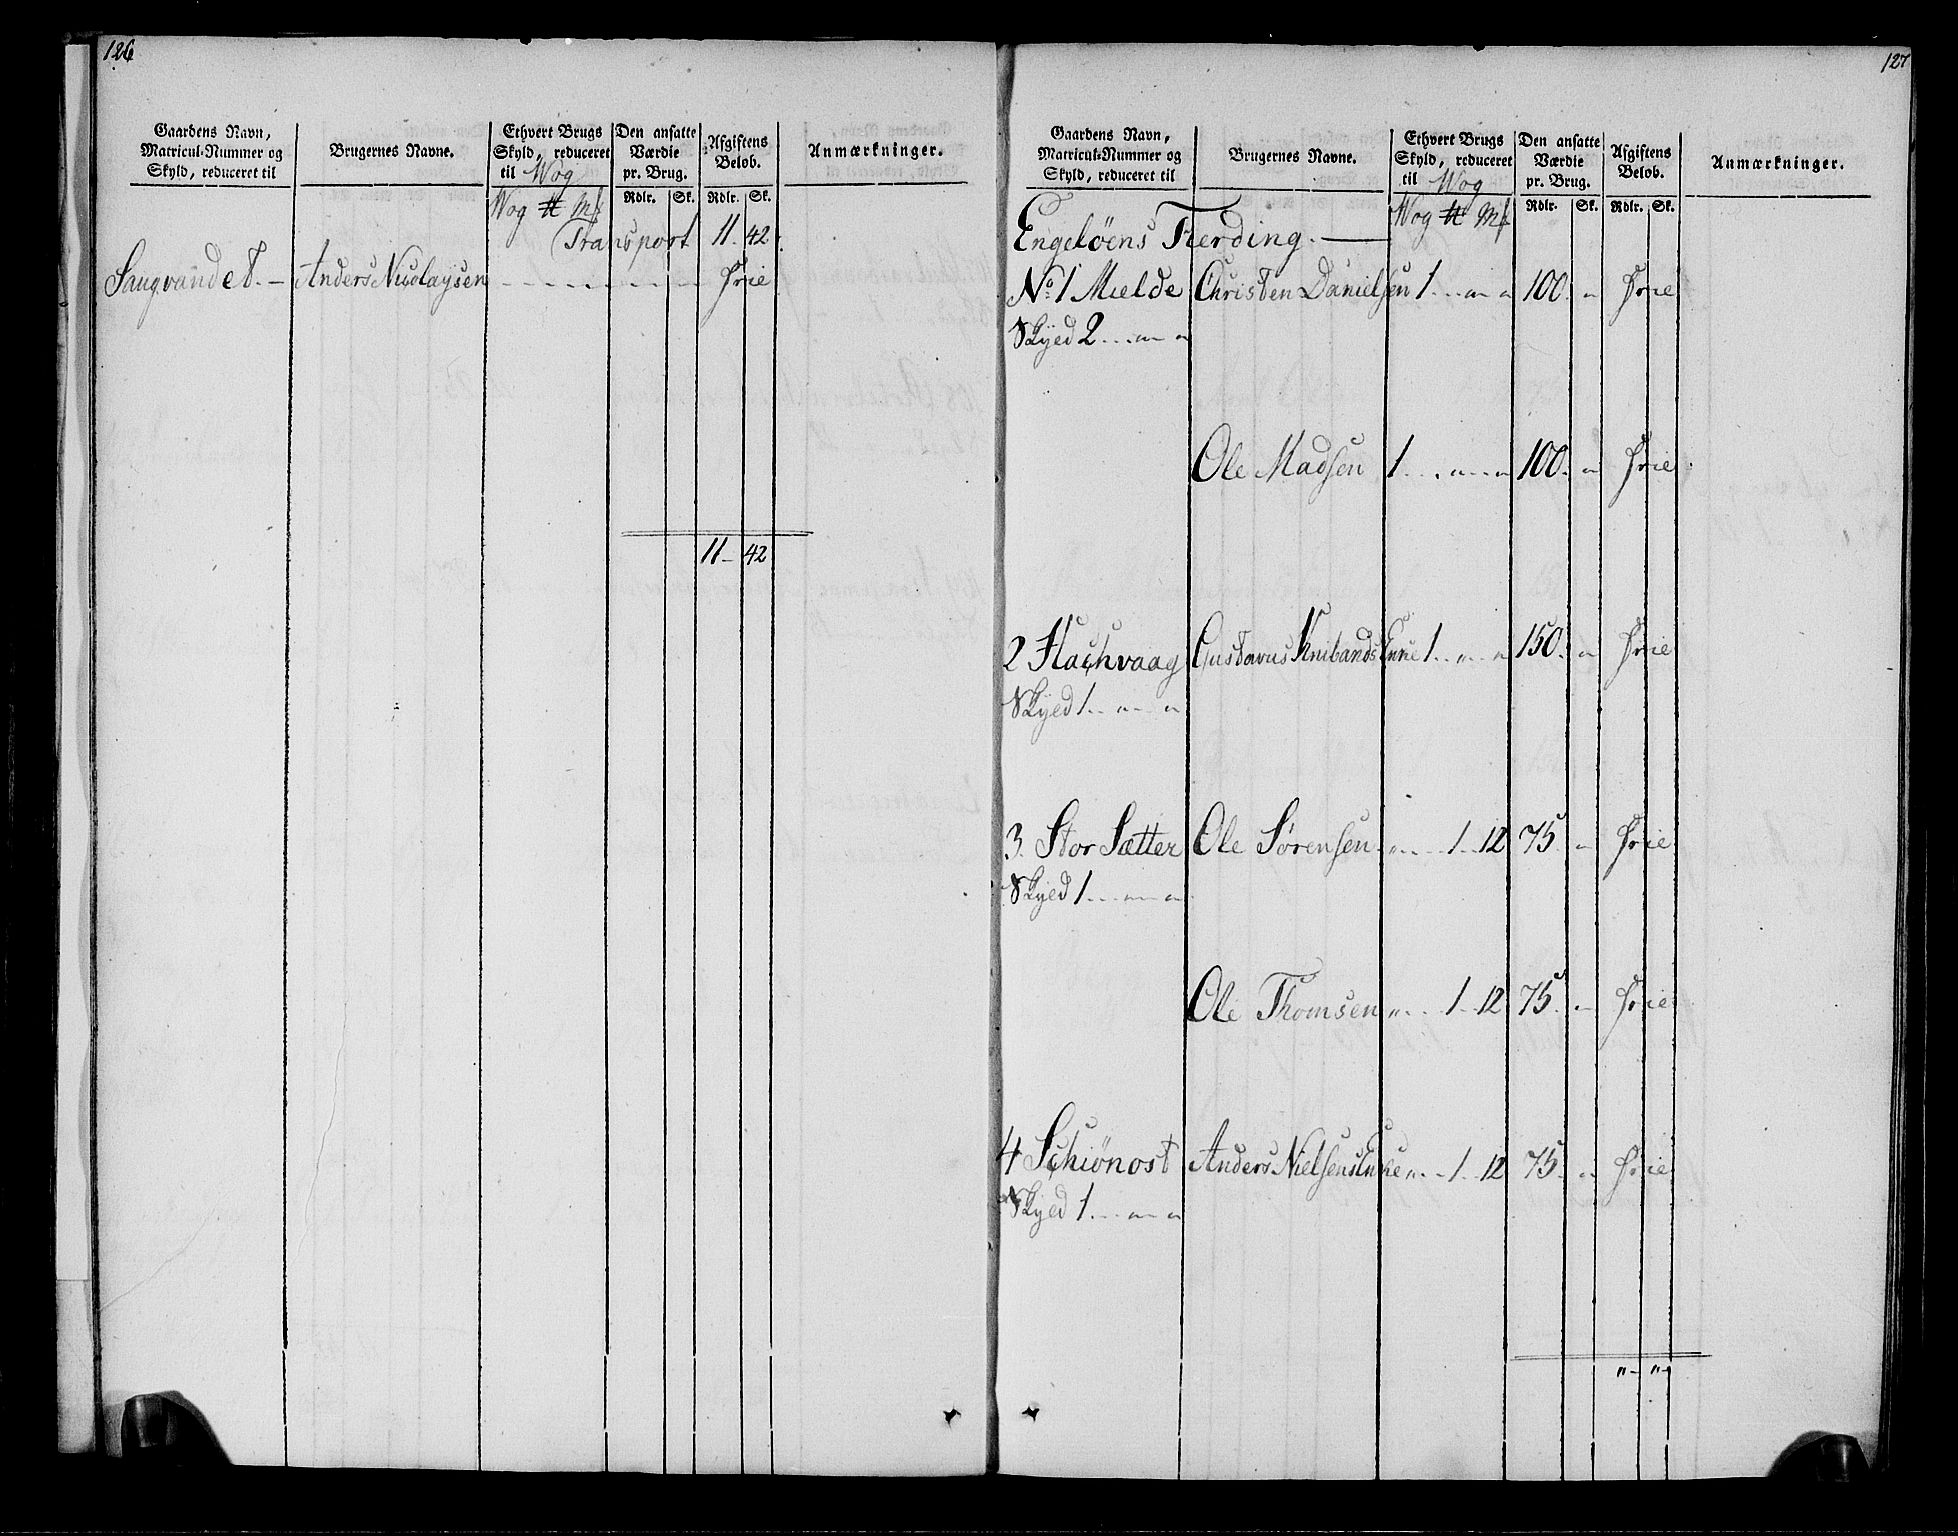 126
Gaardens Navn,
Matricul-Nummer og
Skyld, reduceret til
Brugernes Navne.
Ethvert Brugs
Skyld, reduceret
til Wog
Den ansatte
Værdie
pr. Brug.
Afgiftens
Beløb.
Anmærkninger.
Wog ℔ Mk
Rdlr. Sk. Rdlr. Sk.
Transport 11 - 42.
Saugvandet. — Anders Nicolaysen - - - - - - - - Frie
11 - 42
127
Gaardens Navn,
Matricul-Nummer og
Skyld, reduceret til
Brugernes Navne.
Ethvert Brugs
Skyld, reduceret
til Wog
Den ansatte
Værdie
pr. Brug.
Afgiftens
Beløb.
Anmærkninger.
Wog ℔ Mk
Rdlr. Sk. Rdlr. Sk.
Engelöens Fierding. —
No. 1 Mælde Christen Danielsen 1 . . . „ - „ 100. „ Frie
Skyed 2 . . . „ - „
Ole Madsen 1 . . . „ - „ 100. „ Frie
2 Hachvaag Gustavus Knibands Enke 1 . . „ . . „ 150. „ Frie
Skyed 1 . . „ - „
3. Stor Sætter Ole Sörensen „ . . . 1 . . 12 75. „ Frie
Skyed 1 . . . „ - „
Ole Thomsen „ . . . 1 . . 12 75. „ Frie
4 Schiönost Anders Nielsens Enke „ . . 1 . . 12 75. „ Frie
Skyed 1 . . . „ - „
„ - „ -